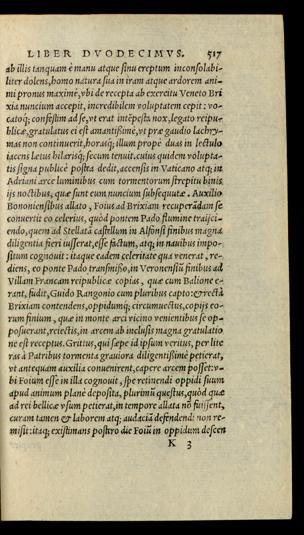 LIBER DVODECIMVS. 517
ab illis tanquam è manu atque sinu ereptum inconsolabi-
liter dolens, homo natura sua in iram atque ardorem ani-
mi pronus maximè, vbi de recepta ab exercitu Veneto Bri
xia nuncium accepit, incredibilem voluptatem cepit: vo-
catoq; confestim ad se, vt erat intēpesta nox, legato reipu-
blicæ, gratulatus ei est amantißimè, vt præ gaudio lachry-
mas non continuerit, horasq; illum propè duas in lectulo
iacens lætus hilarisq; secum tenuit. cuius quidem volupta-
tis signa publicè postra dedit, accensis in Vaticano atq; in
Adriani arce luminibus cum tormentorum strepitu binis
ijs noctibus, quæ sunt eum nuncium subsequutæ. Auxilio
Bononiensibus allato, Foius ad Brixiam recuperādam se
conuertit eo celerius, quòd pontem Pado flumine traijci-
endo, quem ad Stellatā castellum in Alfonsi finibus magna
diligentia fieri iusserat, esse factum, atq; in nauibus impo-
situm cognouit: itaque eadem celeritate qua venerat, re-
diens, eo ponte Pado transmisso, in Veronensiū finibus ad
Villam Francam reipublicæ copias, quæ cum Balione e-
rant, fudit, Guido Rangonio cum pluribus capto: & rectà
Brixiam contendens, oppidumq; circumuectus, copijs eo-
rum finium, quæ in monte arci vicino venientibus se op-
posuerant, reiectis, in arcem ab inclusis magna gratulatio
ne est receptus. Grittus, qui sæpe id ipsum veritus, per lite
ras à Patribus tormenta grauiora diligentißimè petierat,
vt antequam auxilia conuenirent, capere arcem posset: v-
bi Foium esse in illa cognouit, spe retinendi oppidi suum
apud animum planè deposita, plurimū questus, quòd quæ
ad rei bellicæ vsum petierat, in tempore allata nō fuissent,
curam tamen & laborem atq; audaciā defendendi non re-
misit: itaq; existimans postro die Foiū in oppidum descen
K 3